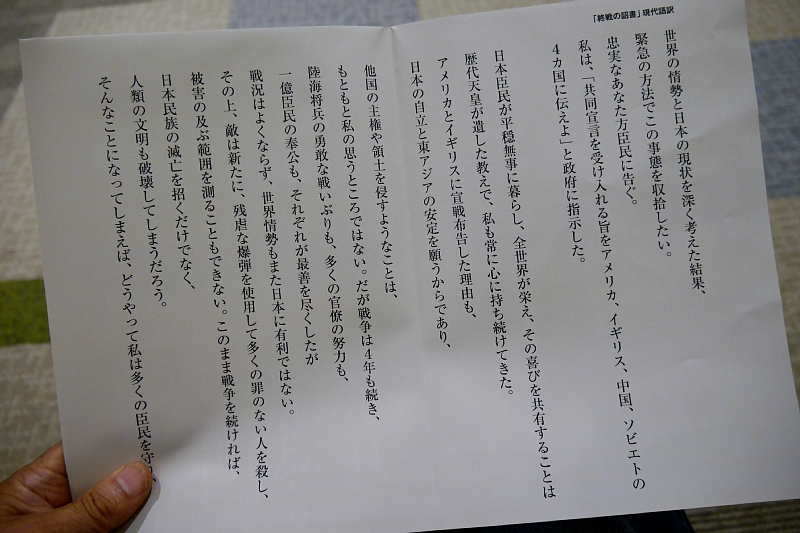 「終戦の詔書」現代語訳
世界の情勢と日本の現状を深く考えた結果、
緊急の方法でこの事態を収拾したい。
忠実なあなた方臣民に告ぐ。
私は、「共同宣言を受け入れる旨をアメリカ、イギリス、中国、ソビエトの
4カ国に伝えよ」と政府に指示した。
日本臣民が平穏無事に暮らし、全世界が栄え、その喜びを共有することは
歴代天皇が遺した教えで、私も常に心に持ち続けてきた。
アメリカとイギリスに宣戦布告した理由も、
日本の自立と東アジアの安定を願うからであり、
他国の主権や領土を侵すようなことは、
もともと私の思うところではない。だが戦争は4年も続き、
陸海将兵の勇敢な戦いぶりも、多くの官僚の努力も、
一億臣民の奉公も、それぞれが最善を尽くしたが
戦況はよくならず、世界情勢もまた日本に有利ではない。
その上、敵は新たに、残虐な爆弾を使用して多くの罪のない人を殺し、
被害の及ぶ範囲を測ることもできない。このまま戦争を続ければ、
日本民族の滅亡を招くだけでなく、
人類の文明も破壊してしまうだろう。
そんなことになってしまえば、どうやって私は多くの臣民を守